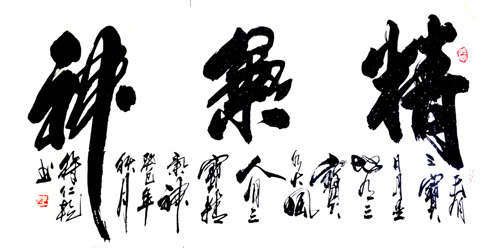 精氣神
天有
三寶
日月星
地有三
寶
水火風
人有三
寶精
氣神
癸巳年
秋月
书